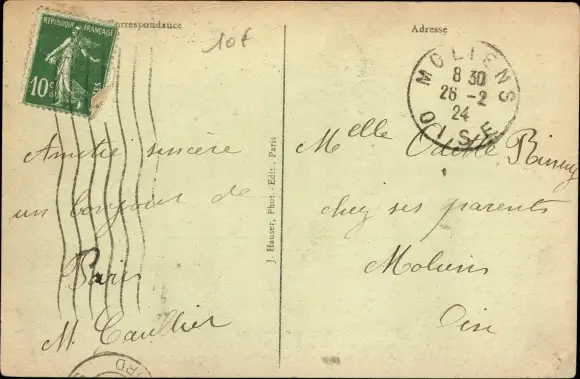 Correspondance
10f
RÉPUBLIQUE FRANÇAISE
10
Amitié sincère
un bonjour de
Paris
M. Caullier
J. Hauser, Phot.-Edit. Paris
Adresse
MOLIENS
8 30
26 -2
24
OISE
Melle Odette
chez ses parents
Moliens
Oise